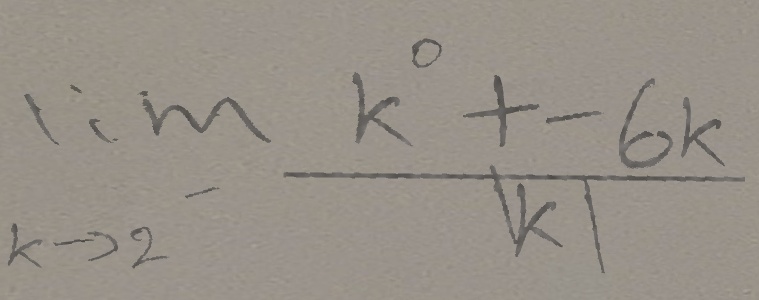 lim_{k→2^-} \frac{k^0 + -6k}{|k|}